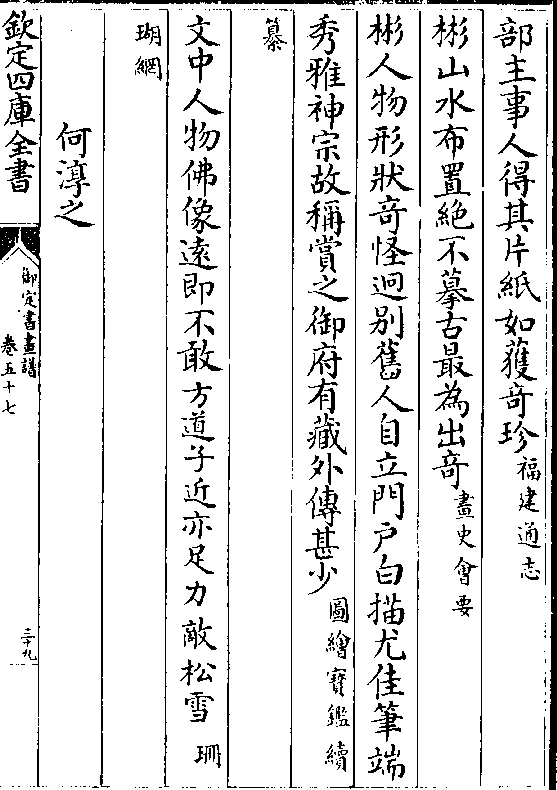 部主事人得其片紙如獲奇珍福建通志
彬山水布置絶不摹古最為出奇畫史會要
彬人物形狀奇怪迥别舊人自立門户白描尤佳筆端
秀雅神宗故稱賞之御府有藏外傳甚少圖繪寳鑑續
纂
文中人物佛像逺即不敢方道子近亦足力敵松雪珊
瑚網
何淳之
欽定四庫全書
御定書畫譜
卷五十七
三十九